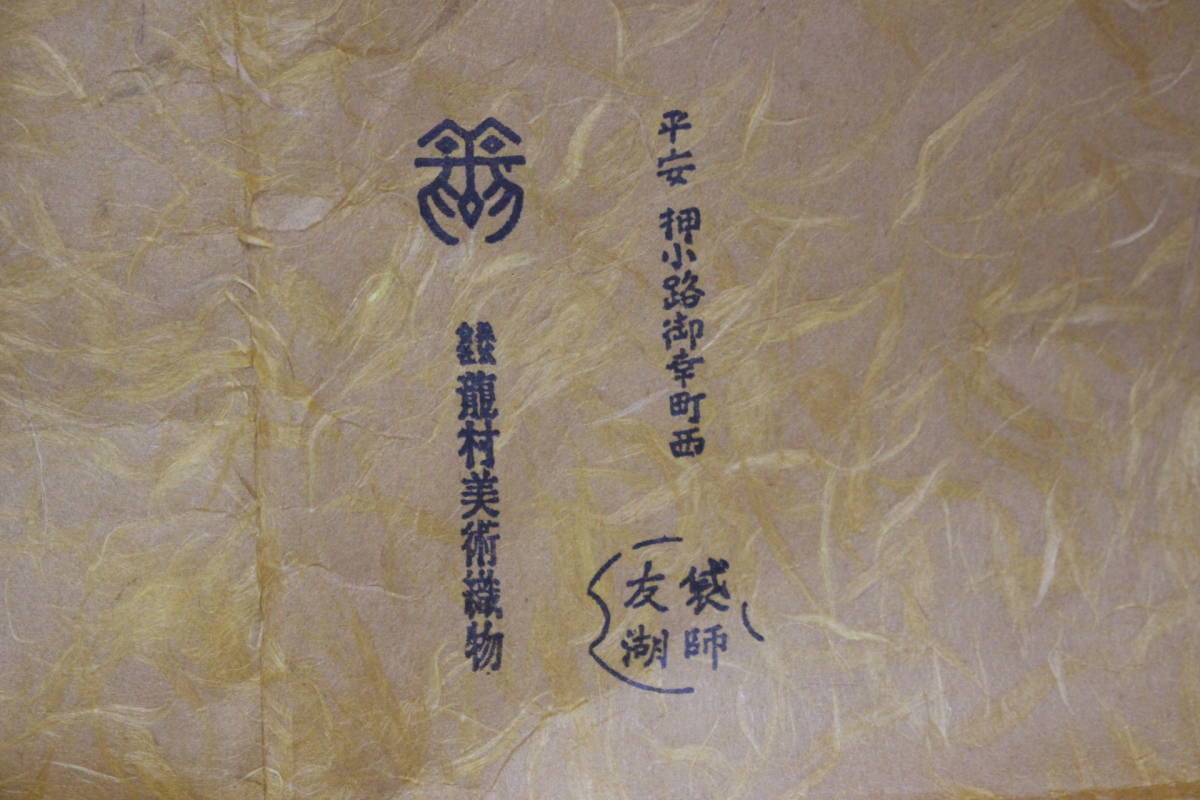 平安 押小路御幸町西
袋師
友湖
龍村美術織物